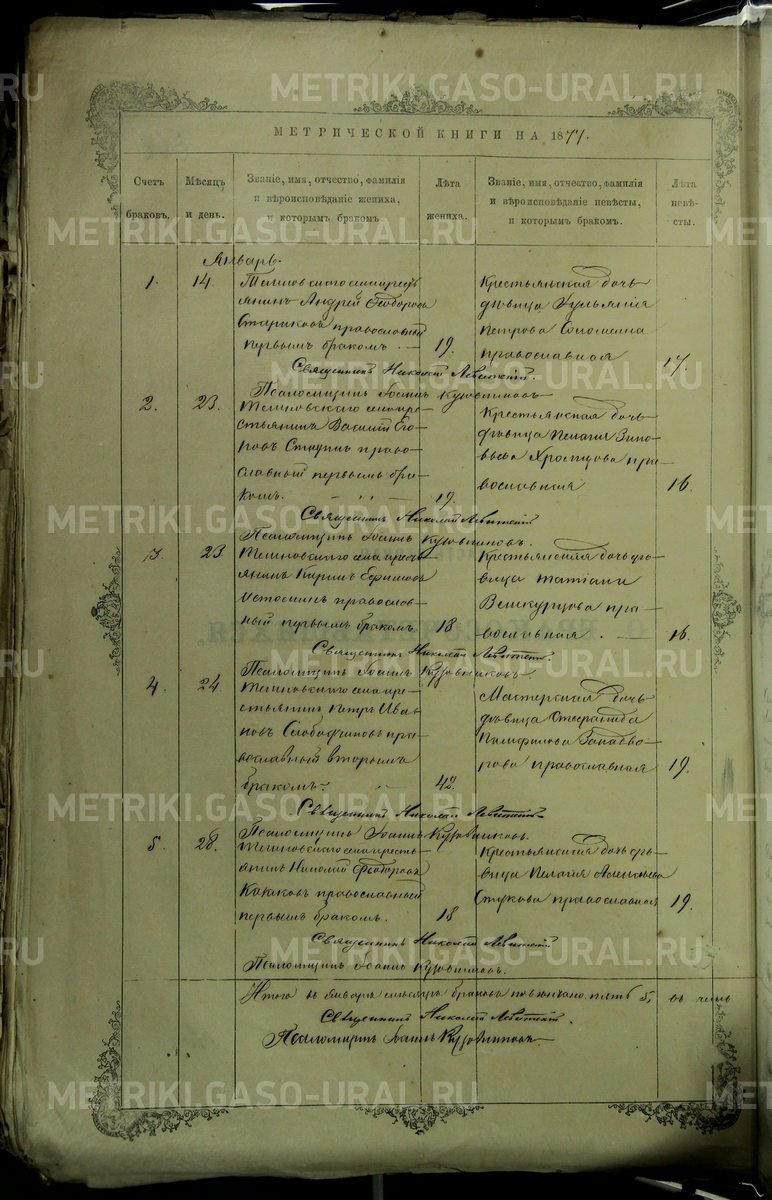 МЕТРИЧЕСКОЙ КНИГИ НА 1877.
Счетъ браковъ.
Мѣсяцъ и день.
Званіе, имя, отчество, фамилія
и вѣроисповѣданіе жениха,
и которымъ бракомъ.
Лѣта
жениха.
Званіе, имя, отчество, фамилія
и вѣроисповѣданіе невѣсты,
и которымъ бракомъ.
Лѣта
невѣ-
сты.
Январь.
1. 14.
села крестъ
янинъ Андрей Ѳеодоровъ
Стариковъ православный
первымъ бракомъ. 19.
Крестьянская дочь
дѣвица Іуліянія
Петрова
православная 17.
Священникъ Николай Левитскій.
Псаломщикъ Іоаннъ Кузовниковъ.
2. 23.
села кре-
стьянинъ Василій Его-
ровъ право-
славный первымъ бра-
комъ. 19.
Крестьянская дочь
дѣвица Пелагія Зино-
вьева Храмцова пра-
вославная 16.
Священникъ Николай Левитскій
Псаломщикъ Іоаннъ Кузовниковъ.
3. 23
села кресть-
янинъ Кирилъ Ефимовъ
православ-
ный первымъ бракомъ 18
Крестьянская дочь дѣ-
вица Татіана
пра-
вославная. 16.
Священникъ Николай Левитскій.
Псаломщикъ Іоаннъ Кузовниковъ
4. 24.
села кре-
стьянинъ Петръ Ива-
новъ Слободчиковъ пра-
вославный вторымъ
бракомъ. 42.
Мастерская дочь
дѣвица Стефанида
Панфилова
православная 19.
Священникъ Николай Левитскій
Псаломщикъ Іоаннъ Кузовниковъ.
5. 28.
села кресть-
янинъ Николай Ѳеодоровъ
Казаковъ православный
первымъ бракомъ. 18
Крестьянская дочь дѣ-
вица Пелагія Алексѣева
Стукова православная 19.
Священникъ Николай Левитскій
Псаломщикъ Іоаннъ Кузовниковъ.
Итого въ Январѣ мѣсяцѣ браковъ повѣнчано пять 5, въ чемъ
Священникъ Николай Левитскій.
Псаломщикъ Іоаннъ Кузовниковъ
METRIKI.GASO-URAL.RU